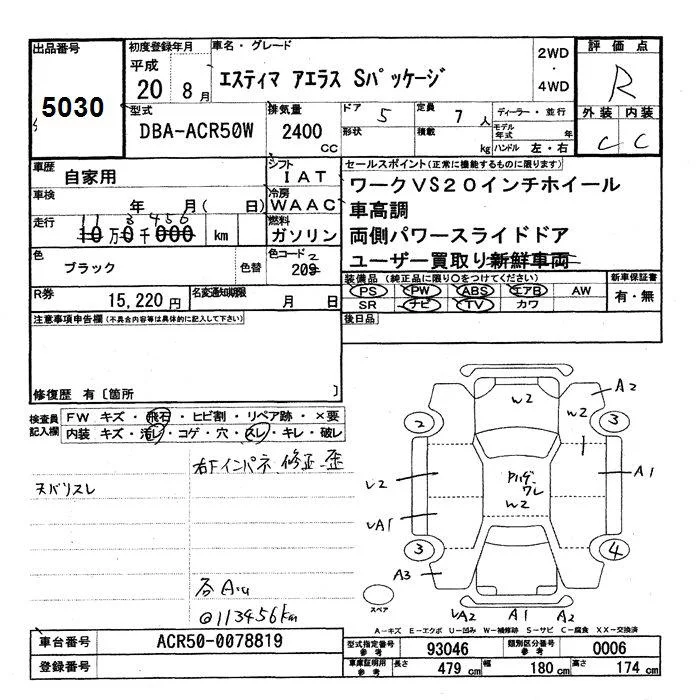 出品番号
5030
初度登録年月
平成
20 8月
車名・グレード
エスティマ アエラス Sパッケージ
2WD
・
4WD
評価点
R
外装 内装
C C
型式
DBA-ACR50W
排気量
2400
cc
ドア 5
定員 7 人
ディーラー・並行
形状
積載 kg
モデル年式 年
ハンドル 左・右
車歴
自家用
シフト
IAT
車検
年 月( 日)
冷房
WAAC
走行
11 3 456
10万0千000 km
燃料
ガソリン
色
ブラック
色替
色コード
2
209
R券
15,220円
名変通知期限
月 日
セールスポイント(正常に機能するものに限ります)
ワークVS20インチホイール
車高調
両側パワースライドドア
ユーザー買取り新鮮車両
装備品(純正品に限り○をつけてください)
PS PW ABS エアB AW
SR ナビ TV カワ
新車保証書
有・無
後日品
注意事項申告欄(不具合内容等は具体的に記入して下さい)
修復歴 有〔箇所 〕
検査員記入欄
FW キズ・飛石・ヒビ割・リペア跡・×要
内装 キズ・汚レ・コゲ・穴・スレ・キレ・破レ
右Fインパネ 修正 歪
天バリスレ
各A.U
@113456km
W2
W2
A2
2
3
1
U2
A1
W2
UA1
3
4
A3
スペア
UA2
A1
A2
A-キズ E-エクボ U-凹み W-補修跡 S-サビ C-腐食 XX-交換済
車台番号
ACR50-0078819
登録番号
型式指定番号
参考
93046
類別区分番号
参考
0006
車庫証明用
参考
長さ
479 cm
幅
180 cm
高さ
174 cm